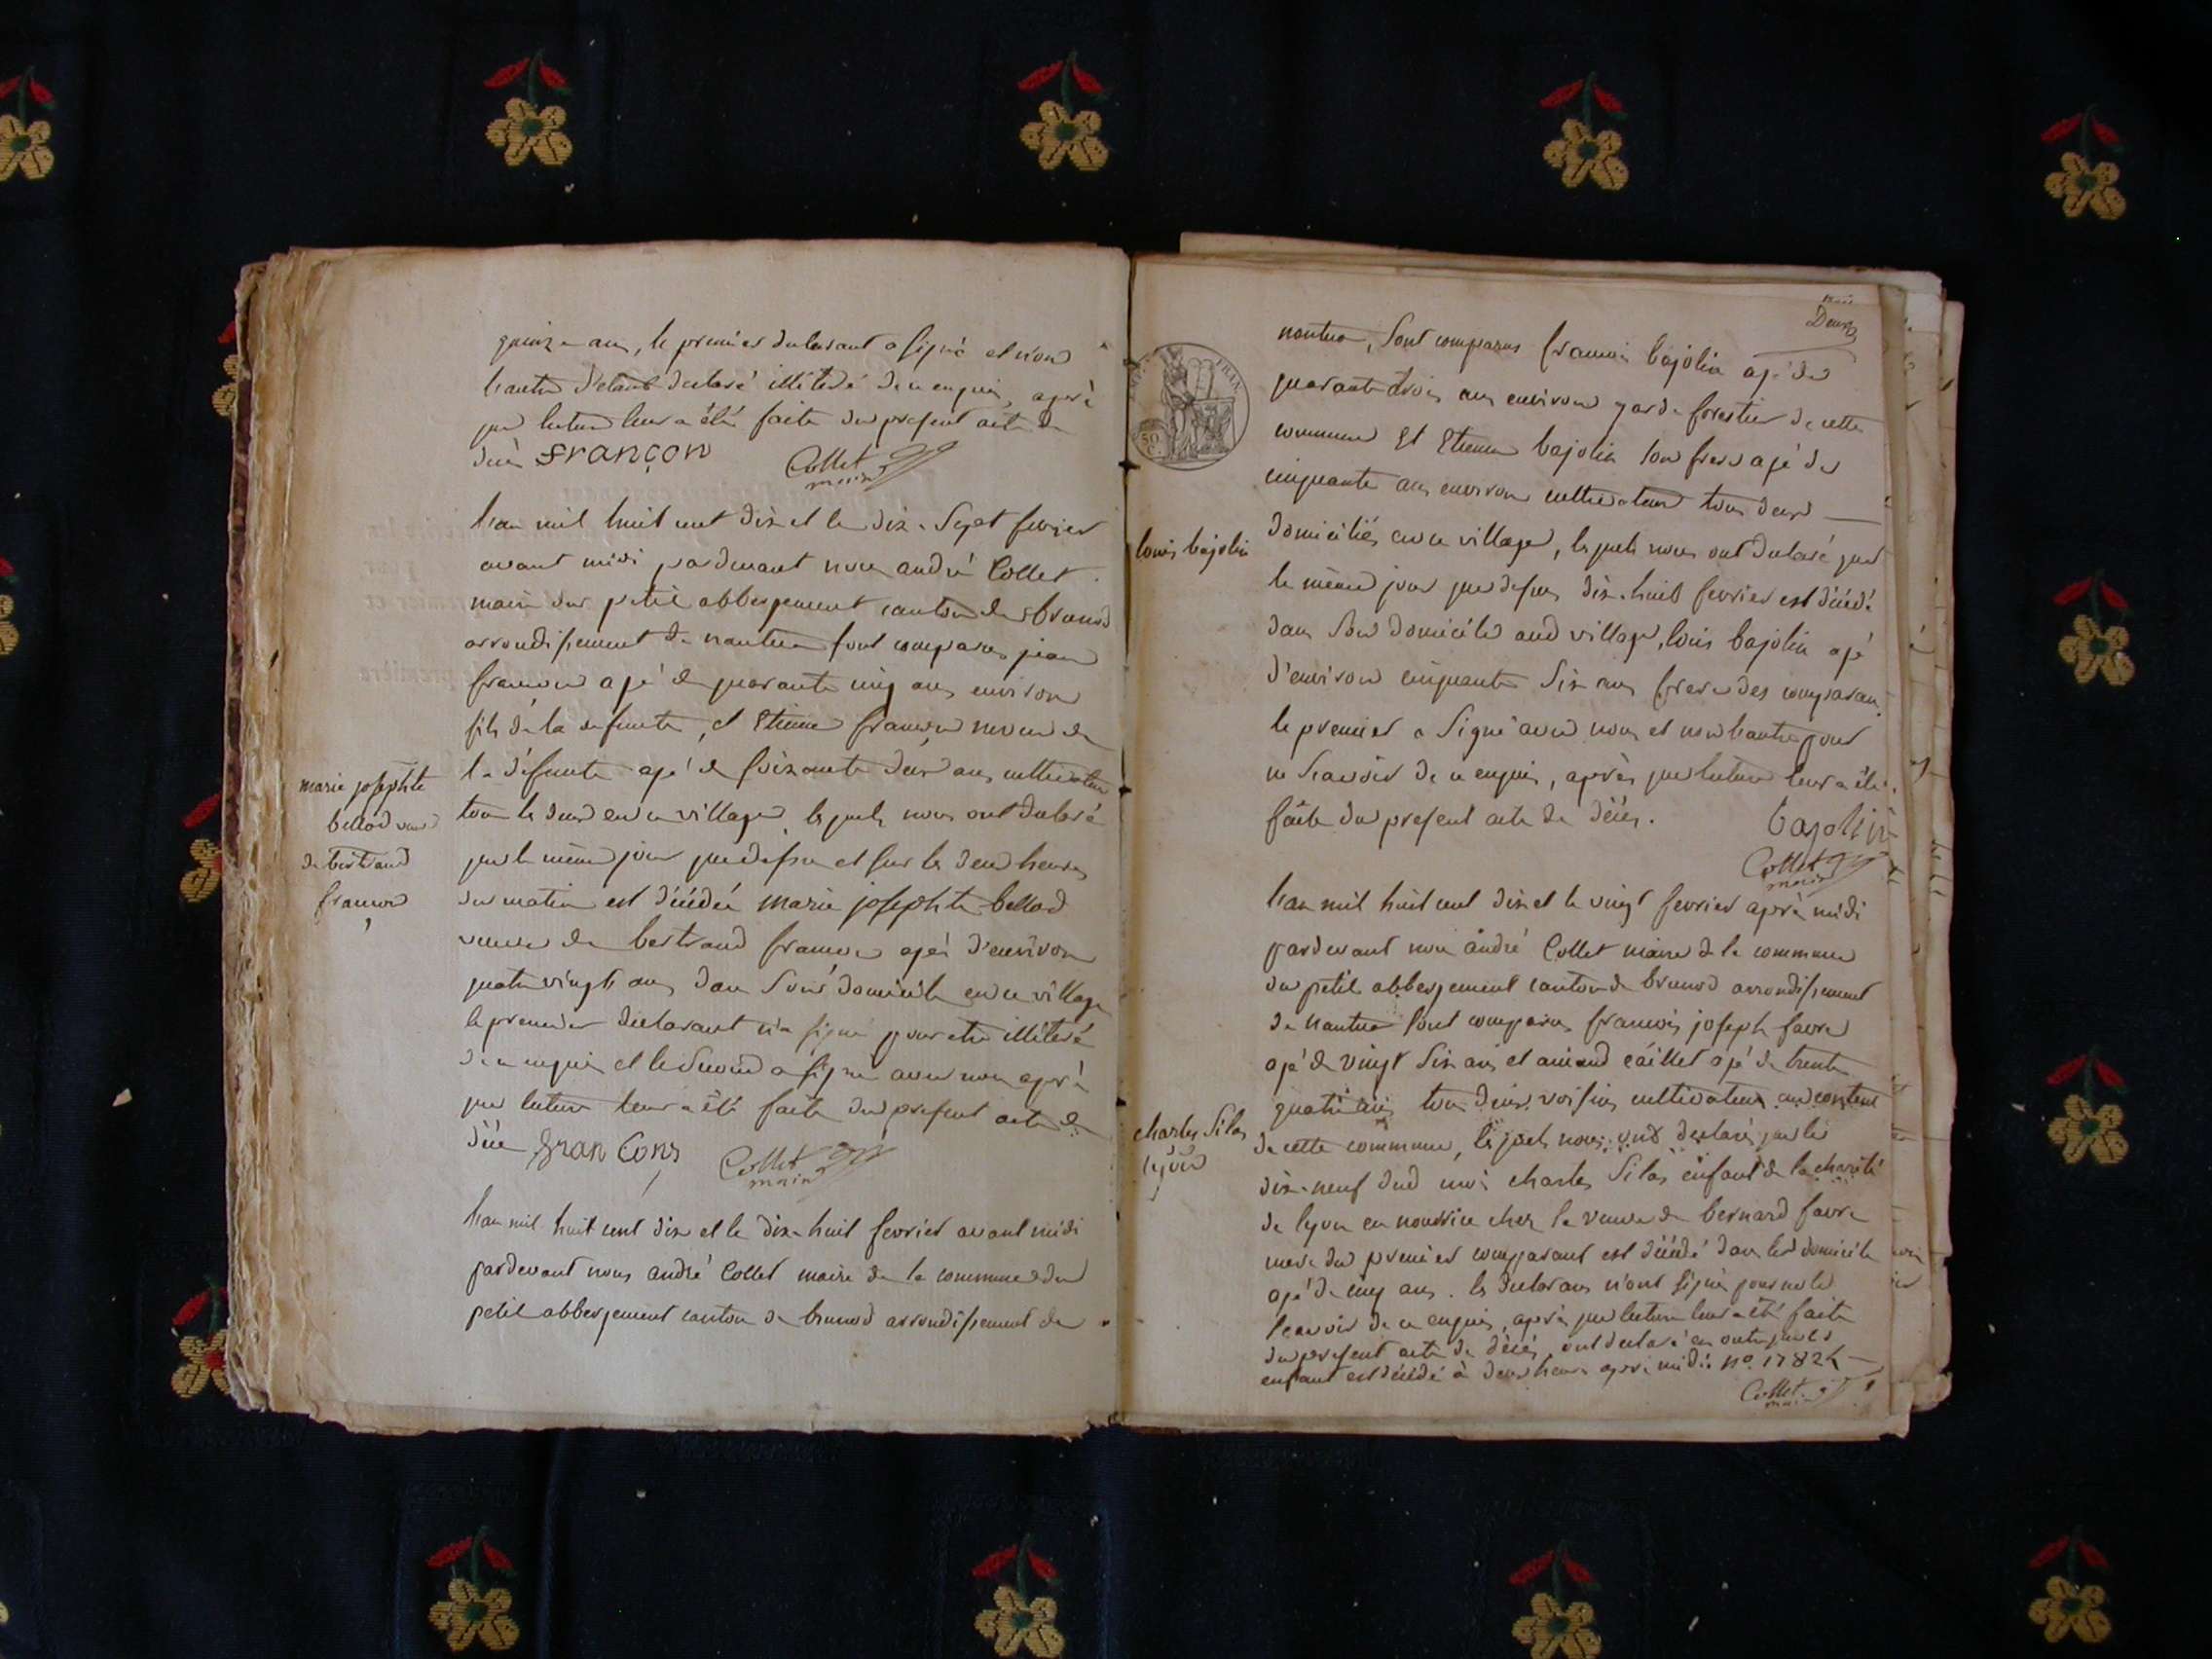 quinze ans, le premier declarant a signé et non
l'autre s'etant declaré illiteré de ce enquis, aprè
que lecture leur a été faite du present acte de
décè françon Collet
maire
l'an mil huit cent dix et le dix-sept fevrier
avant midi pardevant nous andré Collet
maire du petit abbergement canton de brenod
arrondissement de nantua sont comparus jean
françon agé de quarante cinq ans environ
fils de la defunte, et Etienne françon neveu de
la défunte agé de soixante deux ans cultivateurs
tous les deux en ce village lesquels nous ont declaré
que le même jour que dessus et sur les deux heures
du matin est décédée marie josephte bellod
veuve de bertrand françon agée d'environ
quatre vingts ans dans son domicile en ce village
le premier declarant n'a signé pour etre illiteré
de ce enquis et le second a signé avec nous aprè
que lecture leur a été faite du present acte de
décè françons Collet
maire
marie josephte
bellod veuve
de bertrand
françon
l'an mil huit cent dix et le dix-huit fevrier avant midi
pardevant nous andré Collet maire de la commune du
petit abbergement canton de brenod arrondissement de
Deux
nantua, sont comparus francois bajolin agé de
quarante trois ans environ garde forestier de cette
commune Et Etienne bajolin son frere agé de
cinquante ans environ cultivateur tous deux
domiciliés en ce village, lesquels nous ont declaré que
le même jour que dessus dix-huit fevrier est décédé
dans son domicile aud village, louis bajolin agé
d'environ cinquante six ans frere des comparans
le premier a signé avec nous et non l'autre pour
ne scavoir de ce enquis, après que lecture leur a été
faite du present acte de décès. bajolin
Collet
maire
louis bajolin
l'an mil huit cent dix et le vingt fevrier aprè midi
pardevant nous andré Collet maire de la commune
du petit abbergement canton de brenod arrondissement
de nantua sont comparus francois joseph favre
agé de vingt six ans et aimé caillet agé de trente
quatre ans tous deux voisins cultivateurs
de cette commune, lesquels nous ont declaré que le
dix-neuf dud mois charles Silas enfant de la charité
de lyon en nourrice chez la veuve de bernard favre
mere du premier comparant est décédé dans led domicile
agé de cinq ans. les declarans n'ont signé pour ne le
scavoir de ce enquis, après que lecture leur a été faite
du present acte de décès, ont declaré en outre que led
enfant est décédé à deux heures aprè midi no. 17824
Collet
maire
charles Silas
lyon